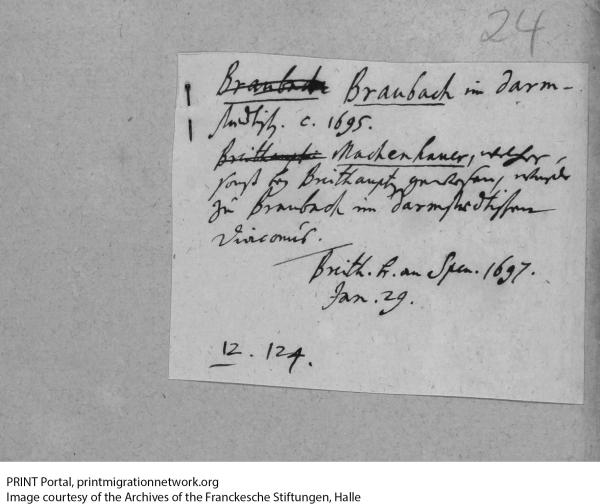 24
Braubach Braubach im Darm-
städtisch. c. 1695.
Breithaupts Machenhauer, welcher,
sonst bey Breithaupt gewesen, wurde
zu Braubach im Darmstädtischen
Diaconus.
Breith. br. an Spen. 1697.
Jan. 29.
12. 124.
PRINT Portal, printmigrationnetwork.org
Image courtesy of the Archives of the Franckesche Stiftungen, Halle